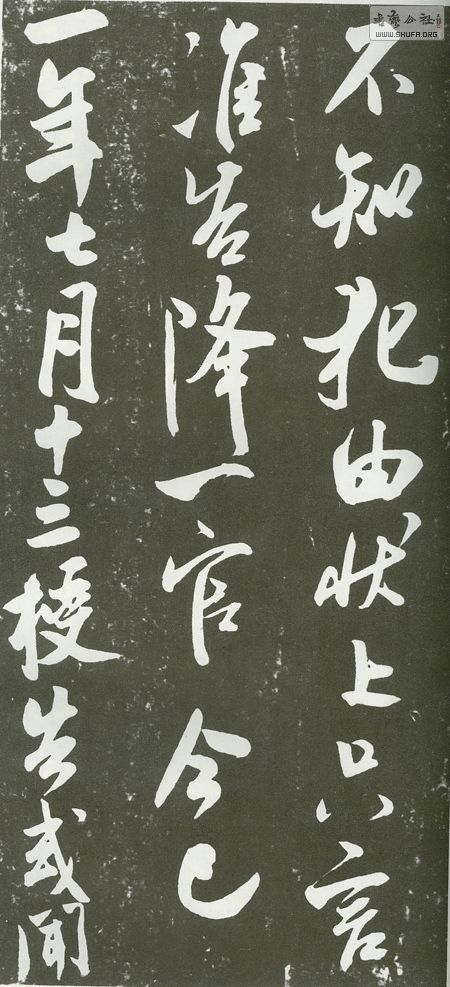 書藝公社
WWW.SHUFA.ORG
不知犯由状上只言
准告降一官今已
一年七月十三告或聞